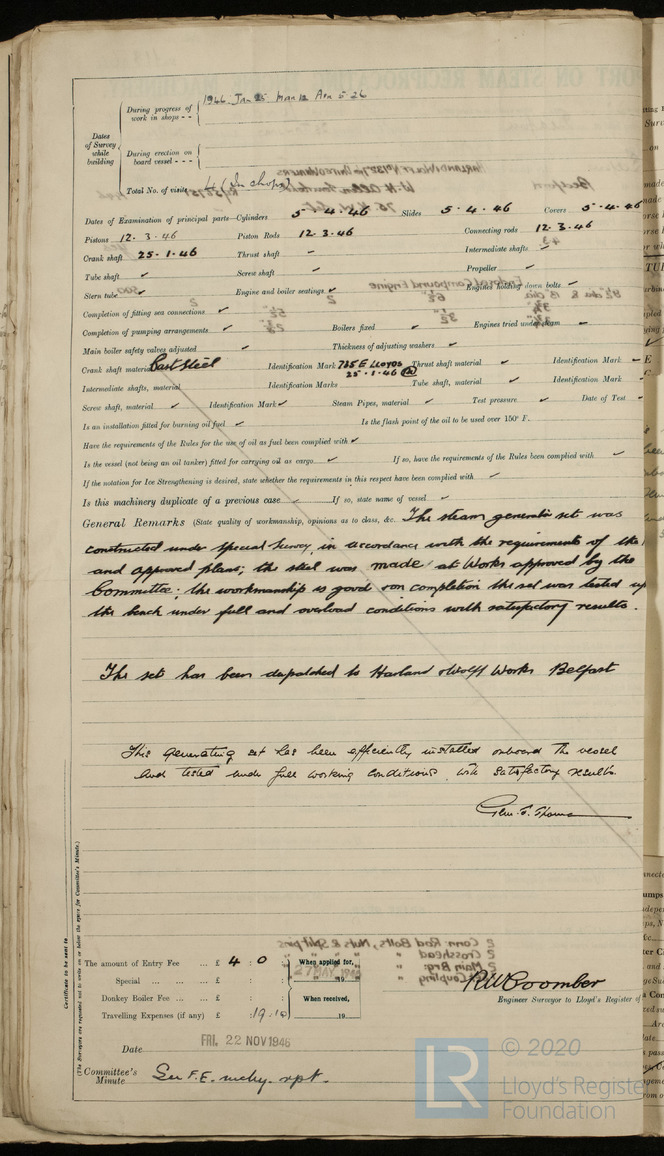 During progress of work in shops - - 1946. Jan 25 Mar 12 Apr 5-26
Dates of Survey while building
During erection on board vessel - - -
Total No. of visits 4 (In shops)
Dates of Examination of principal parts—Cylinders 5-4-46 Slides 5-4-46 Covers 5-4-46
Pistons 12.3.46 Piston Rods 12.3.46 Connecting rods 12.3.46
Crank shaft 25-1-46 Thrust shaft - Intermediate shafts
Tube shaft ✓ Screw shaft Propeller
Stern tube ✓ Engine and boiler seatings ✓ Engines holding down bolts ✓
Completion of fitting sea connections ✓
Completion of pumping arrangements ✓ Boilers fixed Engines tried under steam
Main boiler safety valves adjusted Thickness of adjusting washers
Crank shaft material Cast Steel Identification Mark 725E LLOYDS Thrust shaft material Identification Mark
25-1-46
Intermediate shafts, material Identification Marks Tube shaft, material Identification Mark
Screw shaft, material ✓ Identification Mark ✓ Steam Pipes, material ✓ Test pressure ✓ Date of Test
Is an installation fitted for burning oil fuel ✓ Is the flash point of the oil to be used over 150° F.
Have the requirements of the Rules for the use of oil as fuel been complied with ✓
Is the vessel (not being an oil tanker) fitted for carrying oil as cargo ✓ If so, have the requirements of the Rules been complied with ✓
If the notation for Ice Strengthening is desired, state whether the requirements in this respect have been complied with ✓
Is this machinery duplicate of a previous case ✓ If so, state name of vessel ✓
General Remarks (State quality of workmanship, opinions as to class, &c. The steam generator set was
constructed under special Survey, in accordance with the requirements of the
and approved plans; the steel was made at Works approved by the
Committee; the workmanship is good & on completion the set was tested
the bench under full and overload conditions with satisfactory results.
The set has been despatched to Harland & Wolff Works Belfast
This generating set has been efficiently installed onboard the vessel
and tested under full working conditions with satisfactory results.
Certificate to be sent to
(The Surveyors are requested not to write on or below the space for Committee's Minute.)
The amount of Entry Fee ... £ 4 : 0 : When applied for,
Special ... ... ... £ : : 19
Donkey Boiler Fee ... ... £ : : When received,
Travelling Expenses (if any) £ : 19.10 19
R W Coomber
Engineer Surveyor to Lloyd's Register of
Date FRI. 22 NOV 1946
Committee's Minute See F.E. mchy. rpt.
LR © 2020
Lloyd's Registe
Foundation